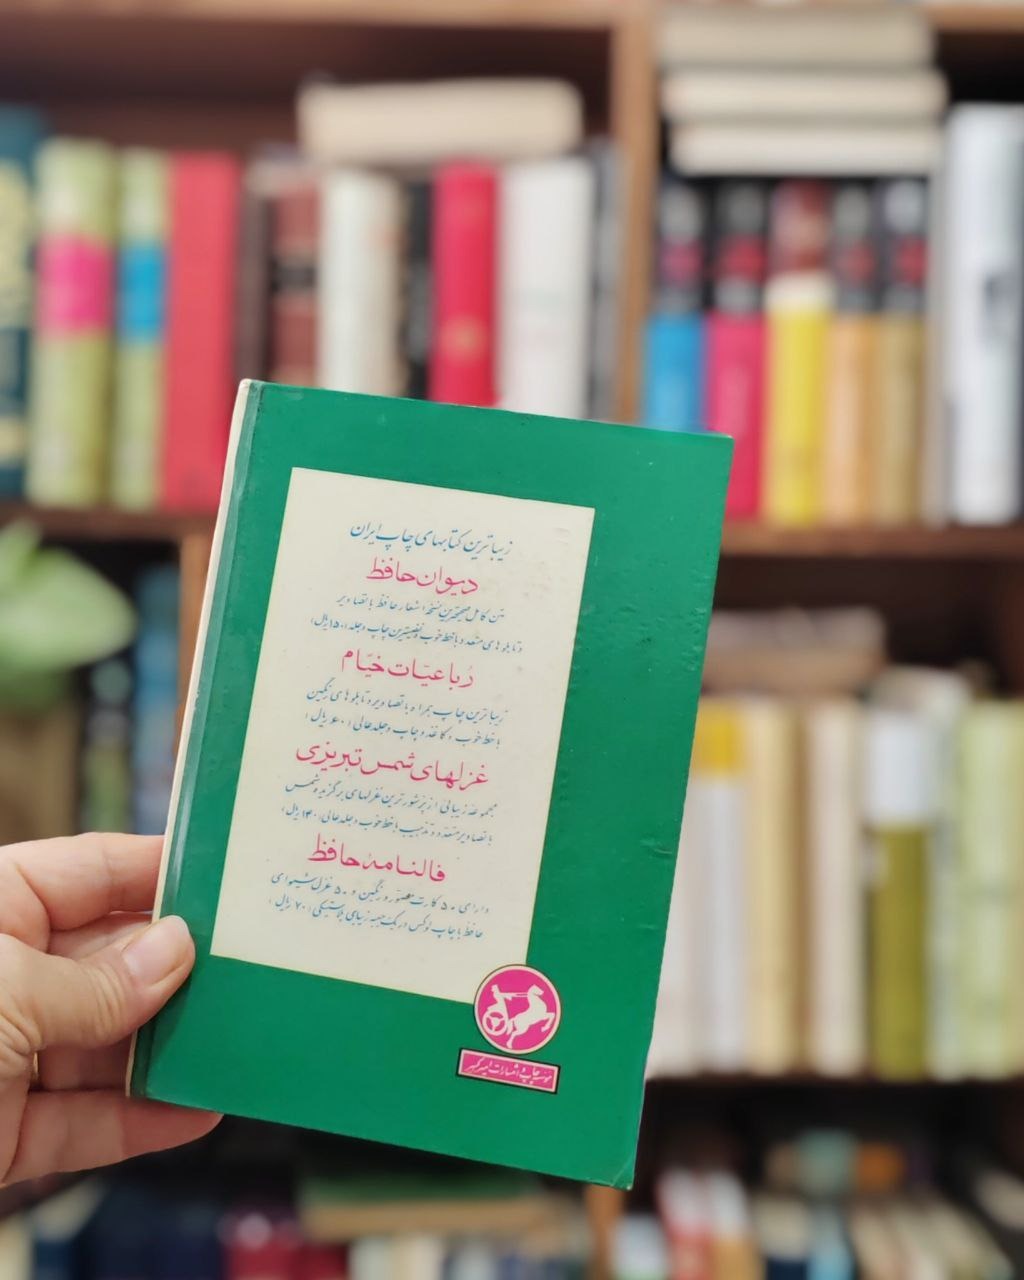 زیباترین کتابهای چاپ ایران
دیوان حافظ
متن کامل صحیحترین نسخهٔ اشعار حافظ با تصاویر
و تابلوهای متعدد با خط خوب و نفیسترین چاپ و جلد (۱۵۰ ریال)
رُباعیّات خیّام
زیباترین چاپ همراه با تصاویر و تابلوهای رنگین
با خط خوب و کاغذ و چاپ و جلد عالی (۶۰ ریال)
غزلهای شمس تبریزی
مجموعهٔ زیبائی از پرشورترین غزلهای برگزیده شمس
با تصاویر متعدد و تذهیب با خط خوب و جلد عالی (۱۳۰ ریال)
فالنامهٔ حافظ
دارای ۵۰ کارت مصوّر و رنگین و ۵۰ غزل شیوای
حافظ با چاپ لوکس در یک جعبه زیبای پلاستیکی (۷۰ ریال)
موسسه چاپ و انتشارات امیرکبیر